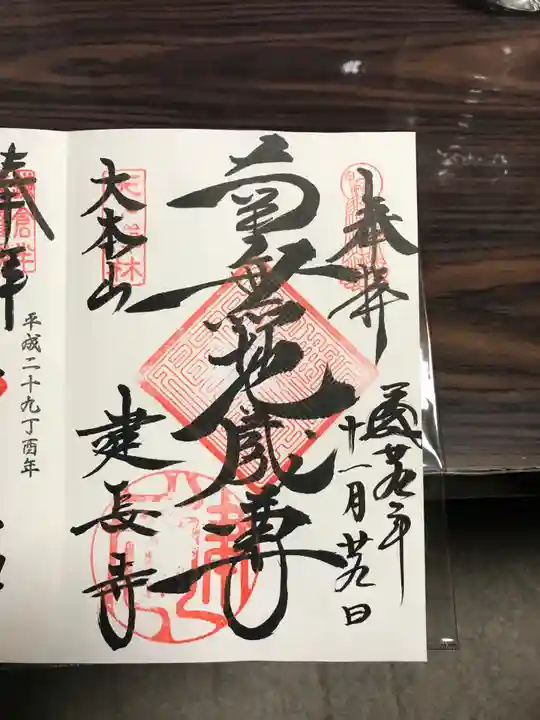 奉拝
十一月廿九日
南無地蔵尊
大本山
建長寺
奉拝
平成二十九丁酉年